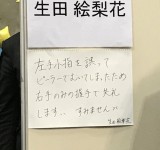 生田 絵梨花
左手小指を誤って
ピーラーでむいてしまったため
右手のみの握手で失礼
します... すみません
生田絵梨花